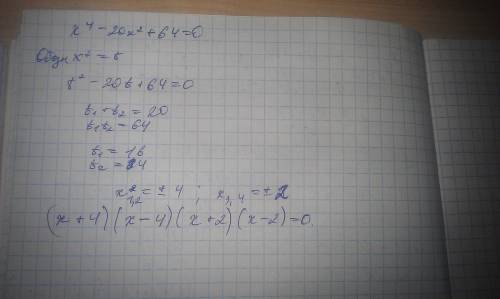 x⁴ - 20x² + 64 = 0
x² = t
t² - 20t + 64 = 0
t₁ + t₂ = 20
t₁t₂ = 64
t₁ = 16
t₂ = 4
x₁,₂ = ± 4 ; x₃,₄ = ± 2
(x + 4)(x - 4)(x + 2)(x - 2) = 0.